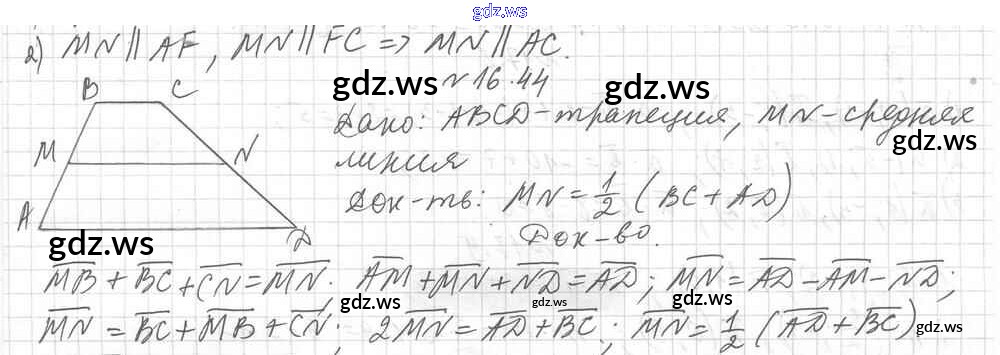 gdz.ws
2) MN ∥ AF, MN ∥ FC => MN ∥ AC.
gdz.ws № 16.44 gdz.ws
B C
Дано: ABCD - трапеция, MN - средняя
gdz.ws
M N линия
Док-ть: MN = 1/2 (BC + AD)
A D
gdz.ws Док-во.
M̅B̅ + B̅C̅ + C̅N̅ = M̅N̅. A̅M̅ + M̅N̅ + N̅D̅ = A̅D̅; M̅N̅ = A̅D̅ - A̅M̅ - N̅D̅;
gdz.ws gdz.ws gdz.ws
M̅N̅ = B̅C̅ + M̅B̅ + C̅N̅; 2M̅N̅ = A̅D̅ + B̅C̅; M̅N̅ = 1/2 (A̅D̅ + B̅C̅) gdz.ws